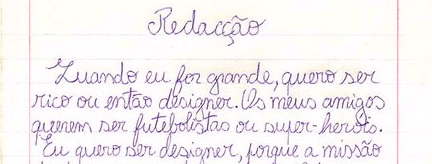 Redacção
Quando eu for grande, quero ser
rico ou então designer. Os meus amigos
querem ser futebolistas ou super-heróis.
Eu quero ser designer, porque a missão